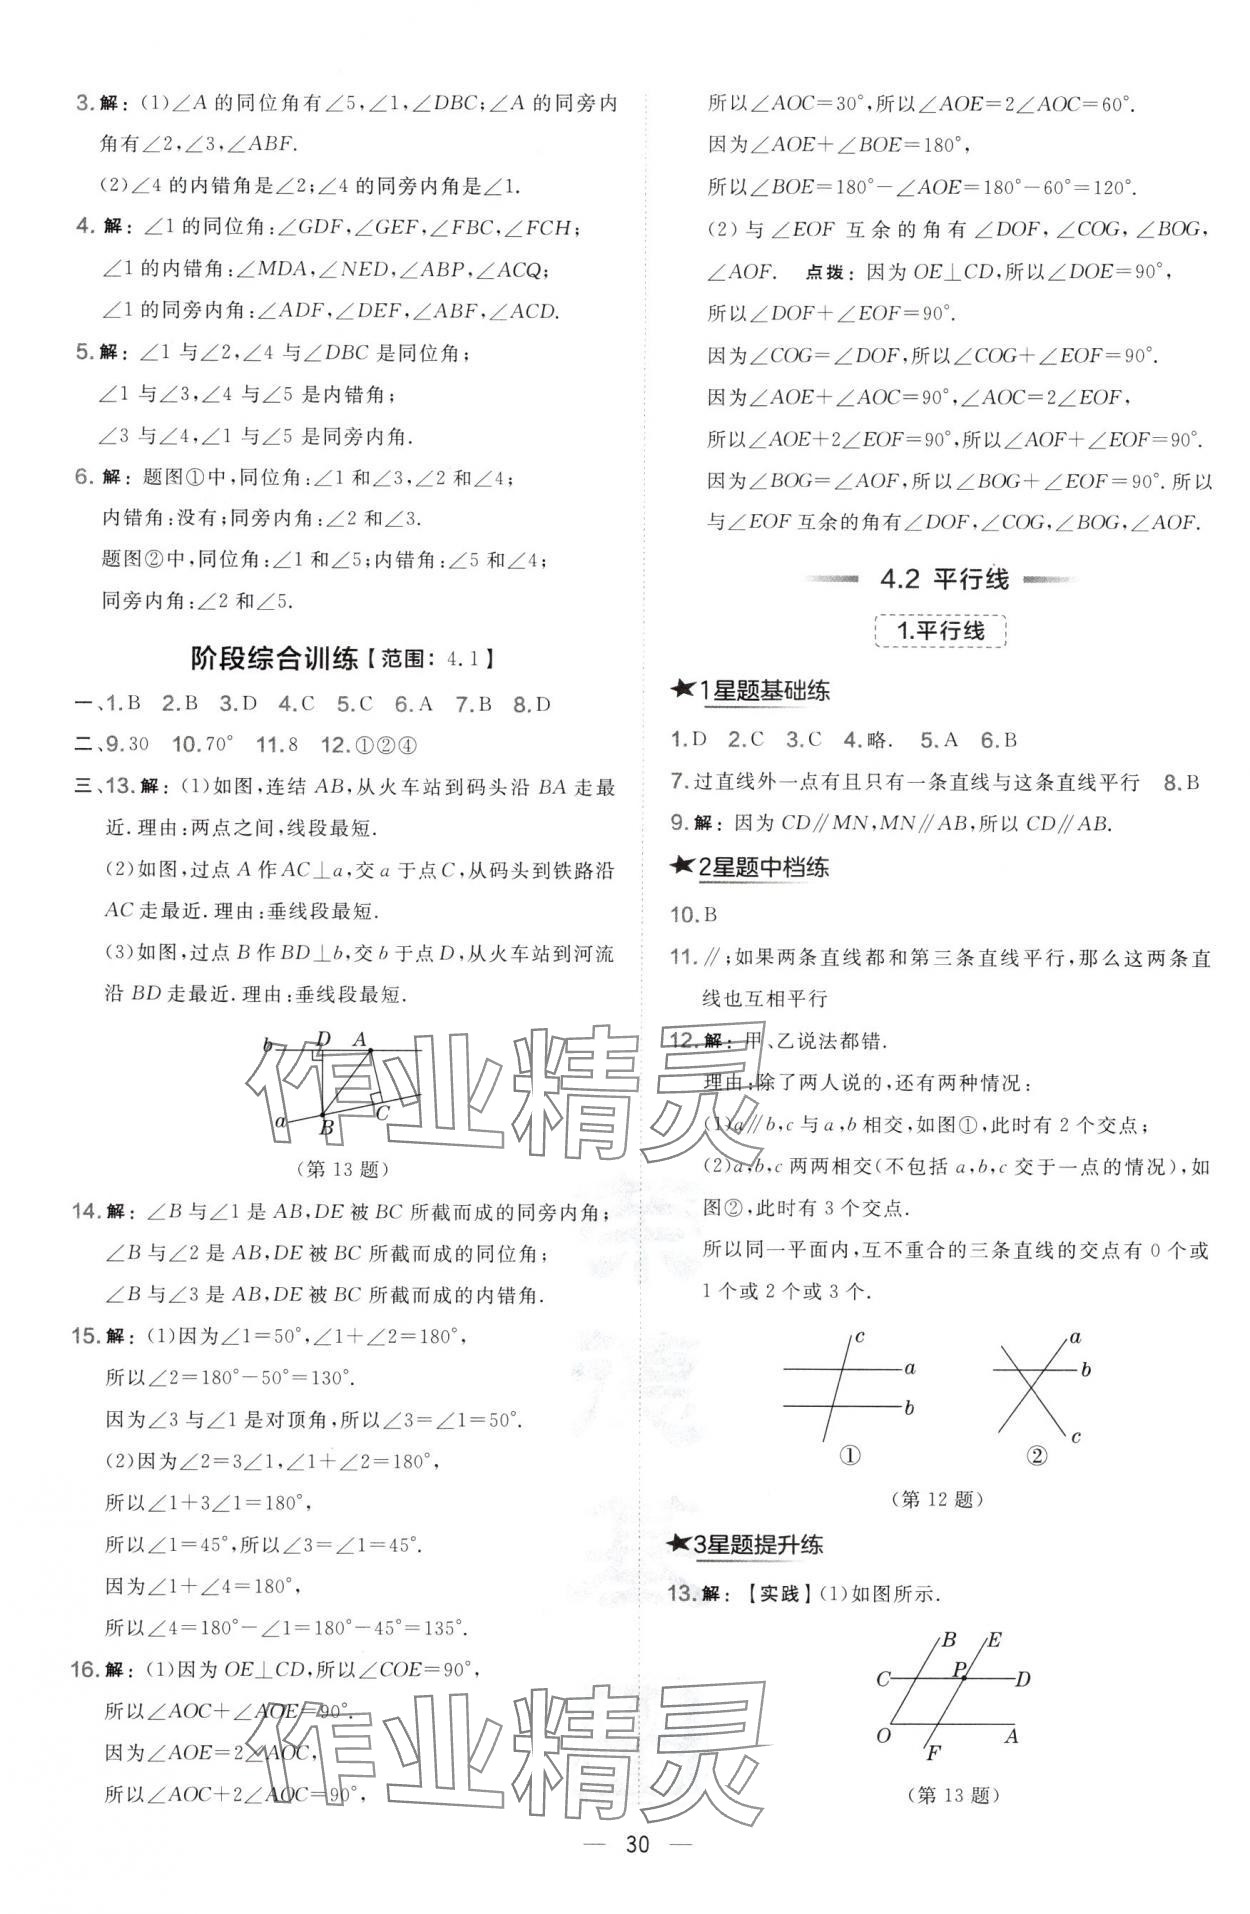 3. 解：(1)∠A 的同位角有∠5,∠1,∠DBC;∠A 的同旁内
角有∠2,∠3,∠ABF.
(2)∠4 的内错角是∠2;∠4 的同旁内角是∠1.
4. 解：∠1 的同位角:∠GDF,∠GEF,∠FBC,∠FCH;
∠1 的内错角:∠MDA,∠NED,∠ABP,∠ACQ;
∠1 的同旁内角:∠ADF,∠DEF,∠ABF,∠ACD.
5. 解：∠1 与∠2,∠4 与∠DBC 是同位角;
∠1 与∠3,∠4 与∠5 是内错角;
∠3 与∠4,∠1 与∠5 是同旁内角.
6. 解：题图①中,同位角:∠1 和∠3,∠2 和∠4;
内错角:没有;同旁内角:∠2 和∠3.
题图②中,同位角:∠1 和∠5;内错角:∠5 和∠4;
同旁内角:∠2 和∠5.
阶段综合训练【范围：4.1】
一、1.B 2.B 3.D 4.C 5.C 6.A 7.B 8.D
二、9.30 10.70° 11.8 12.①②④
三、13.解：(1)如图,连结 AB,从火车站到码头沿 BA 走最
近.理由:两点之间,线段最短.
(2)如图,过点 A 作 AC⊥a,交 a 于点 C,从码头到铁路沿
AC 走最近.理由:垂线段最短.
(3)如图,过点 B 作 BD⊥b,交 b 于点 D,从火车站到河流
沿 BD 走最近.理由:垂线段最短.
b D A
a B C
(第 13 题)
14. 解：∠B 与∠1 是 AB,DE 被 BC 所截而成的同旁内角;
∠B 与∠2 是 AB,DE 被 BC 所截而成的同位角;
∠B 与∠3 是 AB,DE 被 BC 所截而成的内错角.
15. 解：(1)因为∠1=50°,∠1+∠2=180°,
所以∠2=180°-50°=130°.
因为∠3 与∠1 是对顶角,所以∠3=∠1=50°.
(2)因为∠2=3∠1,∠1+∠2=180°,
所以∠1+3∠1=180°,
所以∠1=45°,所以∠3=∠1=45°.
因为∠1+∠4=180°,
所以∠4=180°-∠1=180°-45°=135°.
16. 解：(1)因为 OE⊥CD,所以∠COE=90°,
所以∠AOC+∠AOE=90°.
因为∠AOE=2∠AOC,
所以∠AOC+2∠AOC=90°,
所以∠AOC=30°,所以∠AOE=2∠AOC=60°.
因为∠AOE+∠BOE=180°,
所以∠BOE=180°-∠AOE=180°-60°=120°.
(2)与∠EOF 互余的角有∠DOF,∠COG,∠BOG,
∠AOF. 点拨：因为 OE⊥CD,所以∠DOE=90°,
所以∠DOF+∠EOF=90°.
因为∠COG=∠DOF,所以∠COG+∠EOF=90°.
因为∠AOE+∠AOC=90°,∠AOC=2∠EOF,
所以∠AOE+2∠EOF=90°,所以∠AOF+∠EOF=90°.
因为∠BOG=∠AOF,所以∠BOG+∠EOF=90°.所以
与∠EOF 互余的角有∠DOF,∠COG,∠BOG,∠AOF.
4.2 平行线
1.平行线
★1星题基础练
1.D 2.C 3.C 4.略. 5.A 6.B
7.过直线外一点有且只有一条直线与这条直线平行 8.B
9. 解：因为 CD∥MN,MN∥AB,所以 CD∥AB.
★2星题中档练
10.B
11.∥;如果两条直线都和第三条直线平行,那么这两条直
线也互相平行
12. 解：甲、乙说法都错.
理由:除了两人说的,还有两种情况:
(1)a∥b,c 与 a,b 相交,如图①,此时有 2 个交点;
(2)a,b,c 两两相交(不包括 a,b,c 交于一点的情况),如
图②,此时有 3 个交点.
所以同一平面内,互不重合的三条直线的交点有 0 个或
1 个或 2 个或 3 个.
c a b
①
a b c
②
(第 12 题)
★3星题提升练
13. 解：【实践】(1)如图所示.
B E
C P D
O F A
(第 13 题)
30
作业精灵
作业精灵